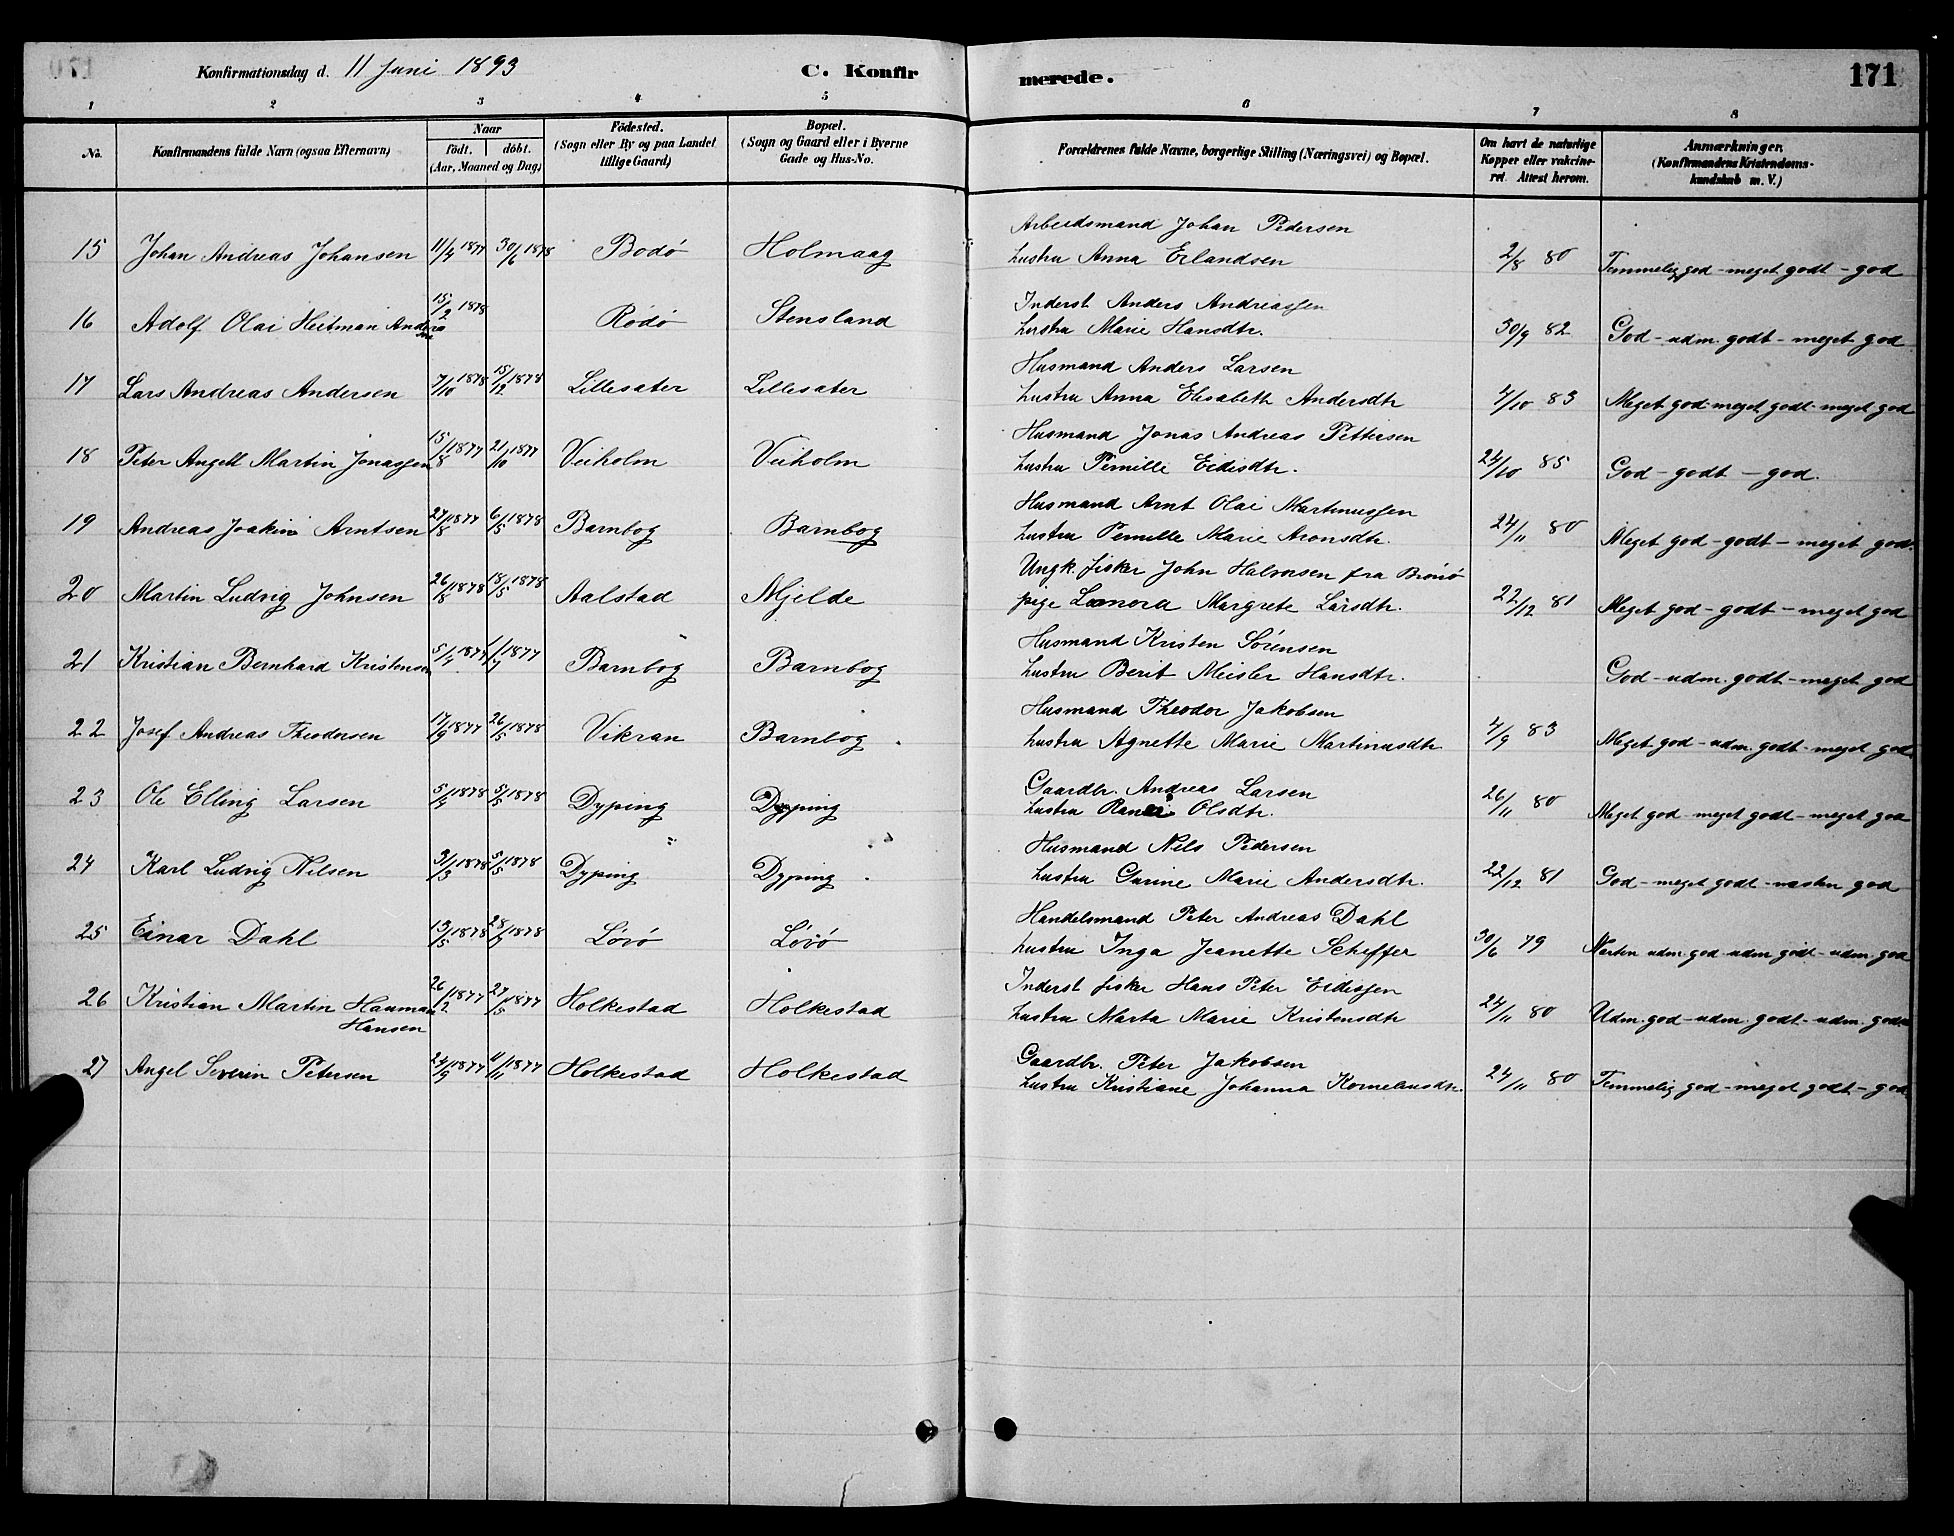 Konfirmationsdag d. 11 Juni 1893 C. Konfirmerede. 171
1 2 3 4 5 6 7 8
No. Konfirmandens fulde Navn (ogsaa Efternavn) Naar født. døbt. (Aar, Maaned og Dag) Fødested. (Sogn eller By og paa Landet tillige Gaard) Bopæl. (Sogn og Gaard eller i Byerne Gade og Hus-No. Forældrenes fulde Navne, borgerlige Stilling (Næringsvei) og Bopæl. Om havt de naturlige Kopper eller vakcineret. Attest herom. Anmærkninger. (Konfirmandens Kristendomskundskab m. V.)
Arbeidsmand Johan Pedersen
15 Johan Andreas Johansen 30/6 1878 Bodø Holmaag Hustru Anna Erlandsen 2/8 80 Temmelig god - meget godt - god
Inderst Anders Andreassen
16 Adolf Olai Heitman Anders 15/2 1878 Rødø Stensland Hustru Marie Hansdtr. 30/9 82 God - udm. godt - meget god
Husmand Anders Larsen
17 Lars Andreas Andersen 7/10 1878 15/12 1878 Lillesæter Lillesæter Hustru Anna Elisabeth Andersdtr 4/10 83 Meget god - meget godt - meget god
Husmand Jonas Andreas Pettersen
18 Peter Angell Martin Jonassen 15/8 1877 21/10 1877 Veiholm Veiholm Hustru Pernille Eidisdtr. 24/10 85 God - godt - god.
Husmand Arnt Olai Martinussen
19 Andreas Joakim Arntsen 27/8 1877 6/5 1878 Barnbog Barnbog Hustru Pernille Marie Aronsdtr. 24/11 80 Meget god - godt - meget god.
Ungk. fisker John Halvorsen fra Brønø
20 Martin Ludvig Johnsen 18/5 1878 Aalstad Mjelde pige Margrete Larsdtr. 22/12 81 Meget god - godt - meget god
Husmand Kristen Sørensen
21 Kristian Bernhard Kristensen 1/7 1877 Barnbog Barnbog Hustru Berit Meisler Hansdtr. God - udm. godt - meget god
Husmand Theodor Jakobsen
22 Josef Andreas Theodorsen 17/9 1877 26/5 1878 Vikran Barnbog Hustru Agnette Marie Martinusdtr 4/9 83 Meget god - udm. godt - meget god
Gaardbr. Andreas Larsen
23 Ole Elling Larsen 5/5 1878 Dyping Dyping Hustru Olsdtr. 26/11 80 Meget god - meget godt - meget god
Husmand Nils Pedersen
24 Karl Ludvig Nilsen 3/3 1878 5/5 1878 Dyping Dyping Hustru Gurine Marie Andersdtr. 22/12 81 God - meget godt - næsten god
Handelsmand Peter Andreas Dahl
25 Einar Dahl 13/5 1878 28/7 1878 Løvø Løvø Hustru Inga Jeanette Schiffer 30/6 79 Næsten udm. god - udm godt - udm. god
Inderst fisker Hans Peter Eidissen
26 Kristian Martin Hauman 26/2 1877 27/5 1877 Holkestad Holkestad Hustru Marta Marie Kristensdtr 24/11 80 Udm. god - udm. godt - udm. god
Hansen
Gaardbr. Peter Jakobsen
27 Angel Severin Petersen 24/9 1877 11/11 1877 Holkestad Holkestad Hustru Kristiane Johanna Korneliusdtr. 24/11 80 Temmelig god - meget godt - god